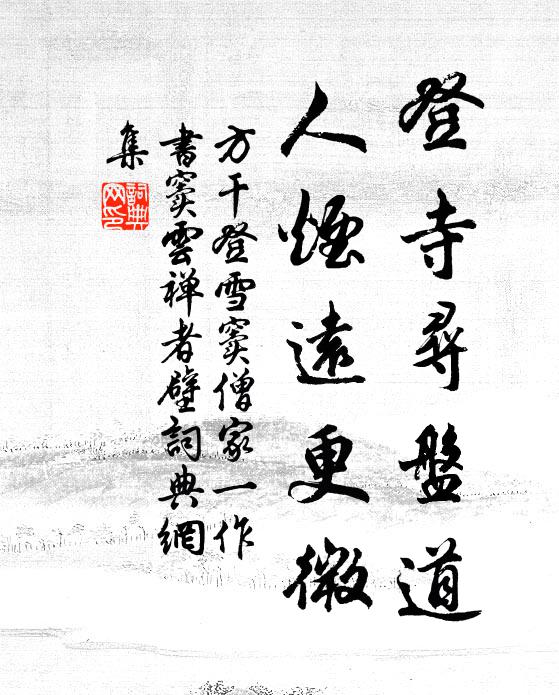 登寺尋盤道
人煙遠更微
方干登雪竇僧家一作
書竇雲禅者壁詞典網
集
詞典網印